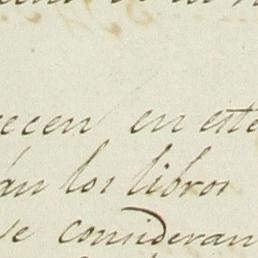 ecen en este
án los libros
se consideran